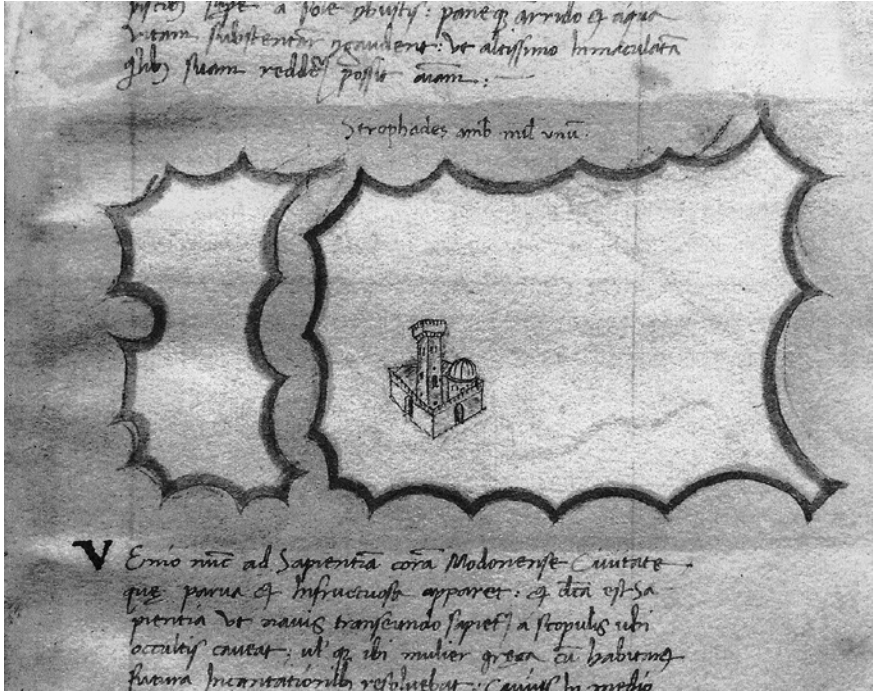 piscibus sepe a sole combustis: paneque arrido et aqua
vitam substentare congaudent: Ut altissimo Immaculatam
quilibet suam reddere possit animam:
Strophades amb mil unum.
Venio nunc ad Sapientiam coram Modonense Civitate
que parva et Infructuosa apparet: et dicta est Sa
pientia Ut navis transeundo sapienter a scopulis ubi
occultis caveat: vel quia ibi mulier greca cum habitaret
futura Incantationibus resolvebat: Cuius In medio